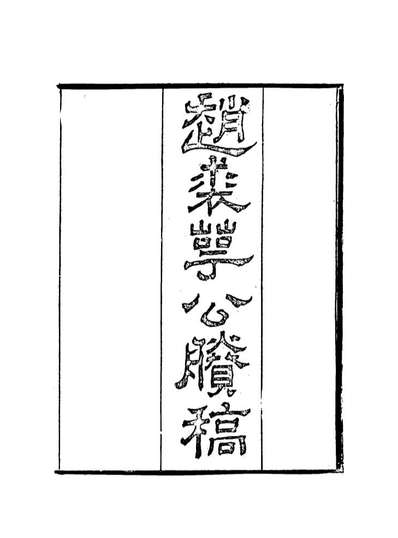 趙裘萼公賸稿